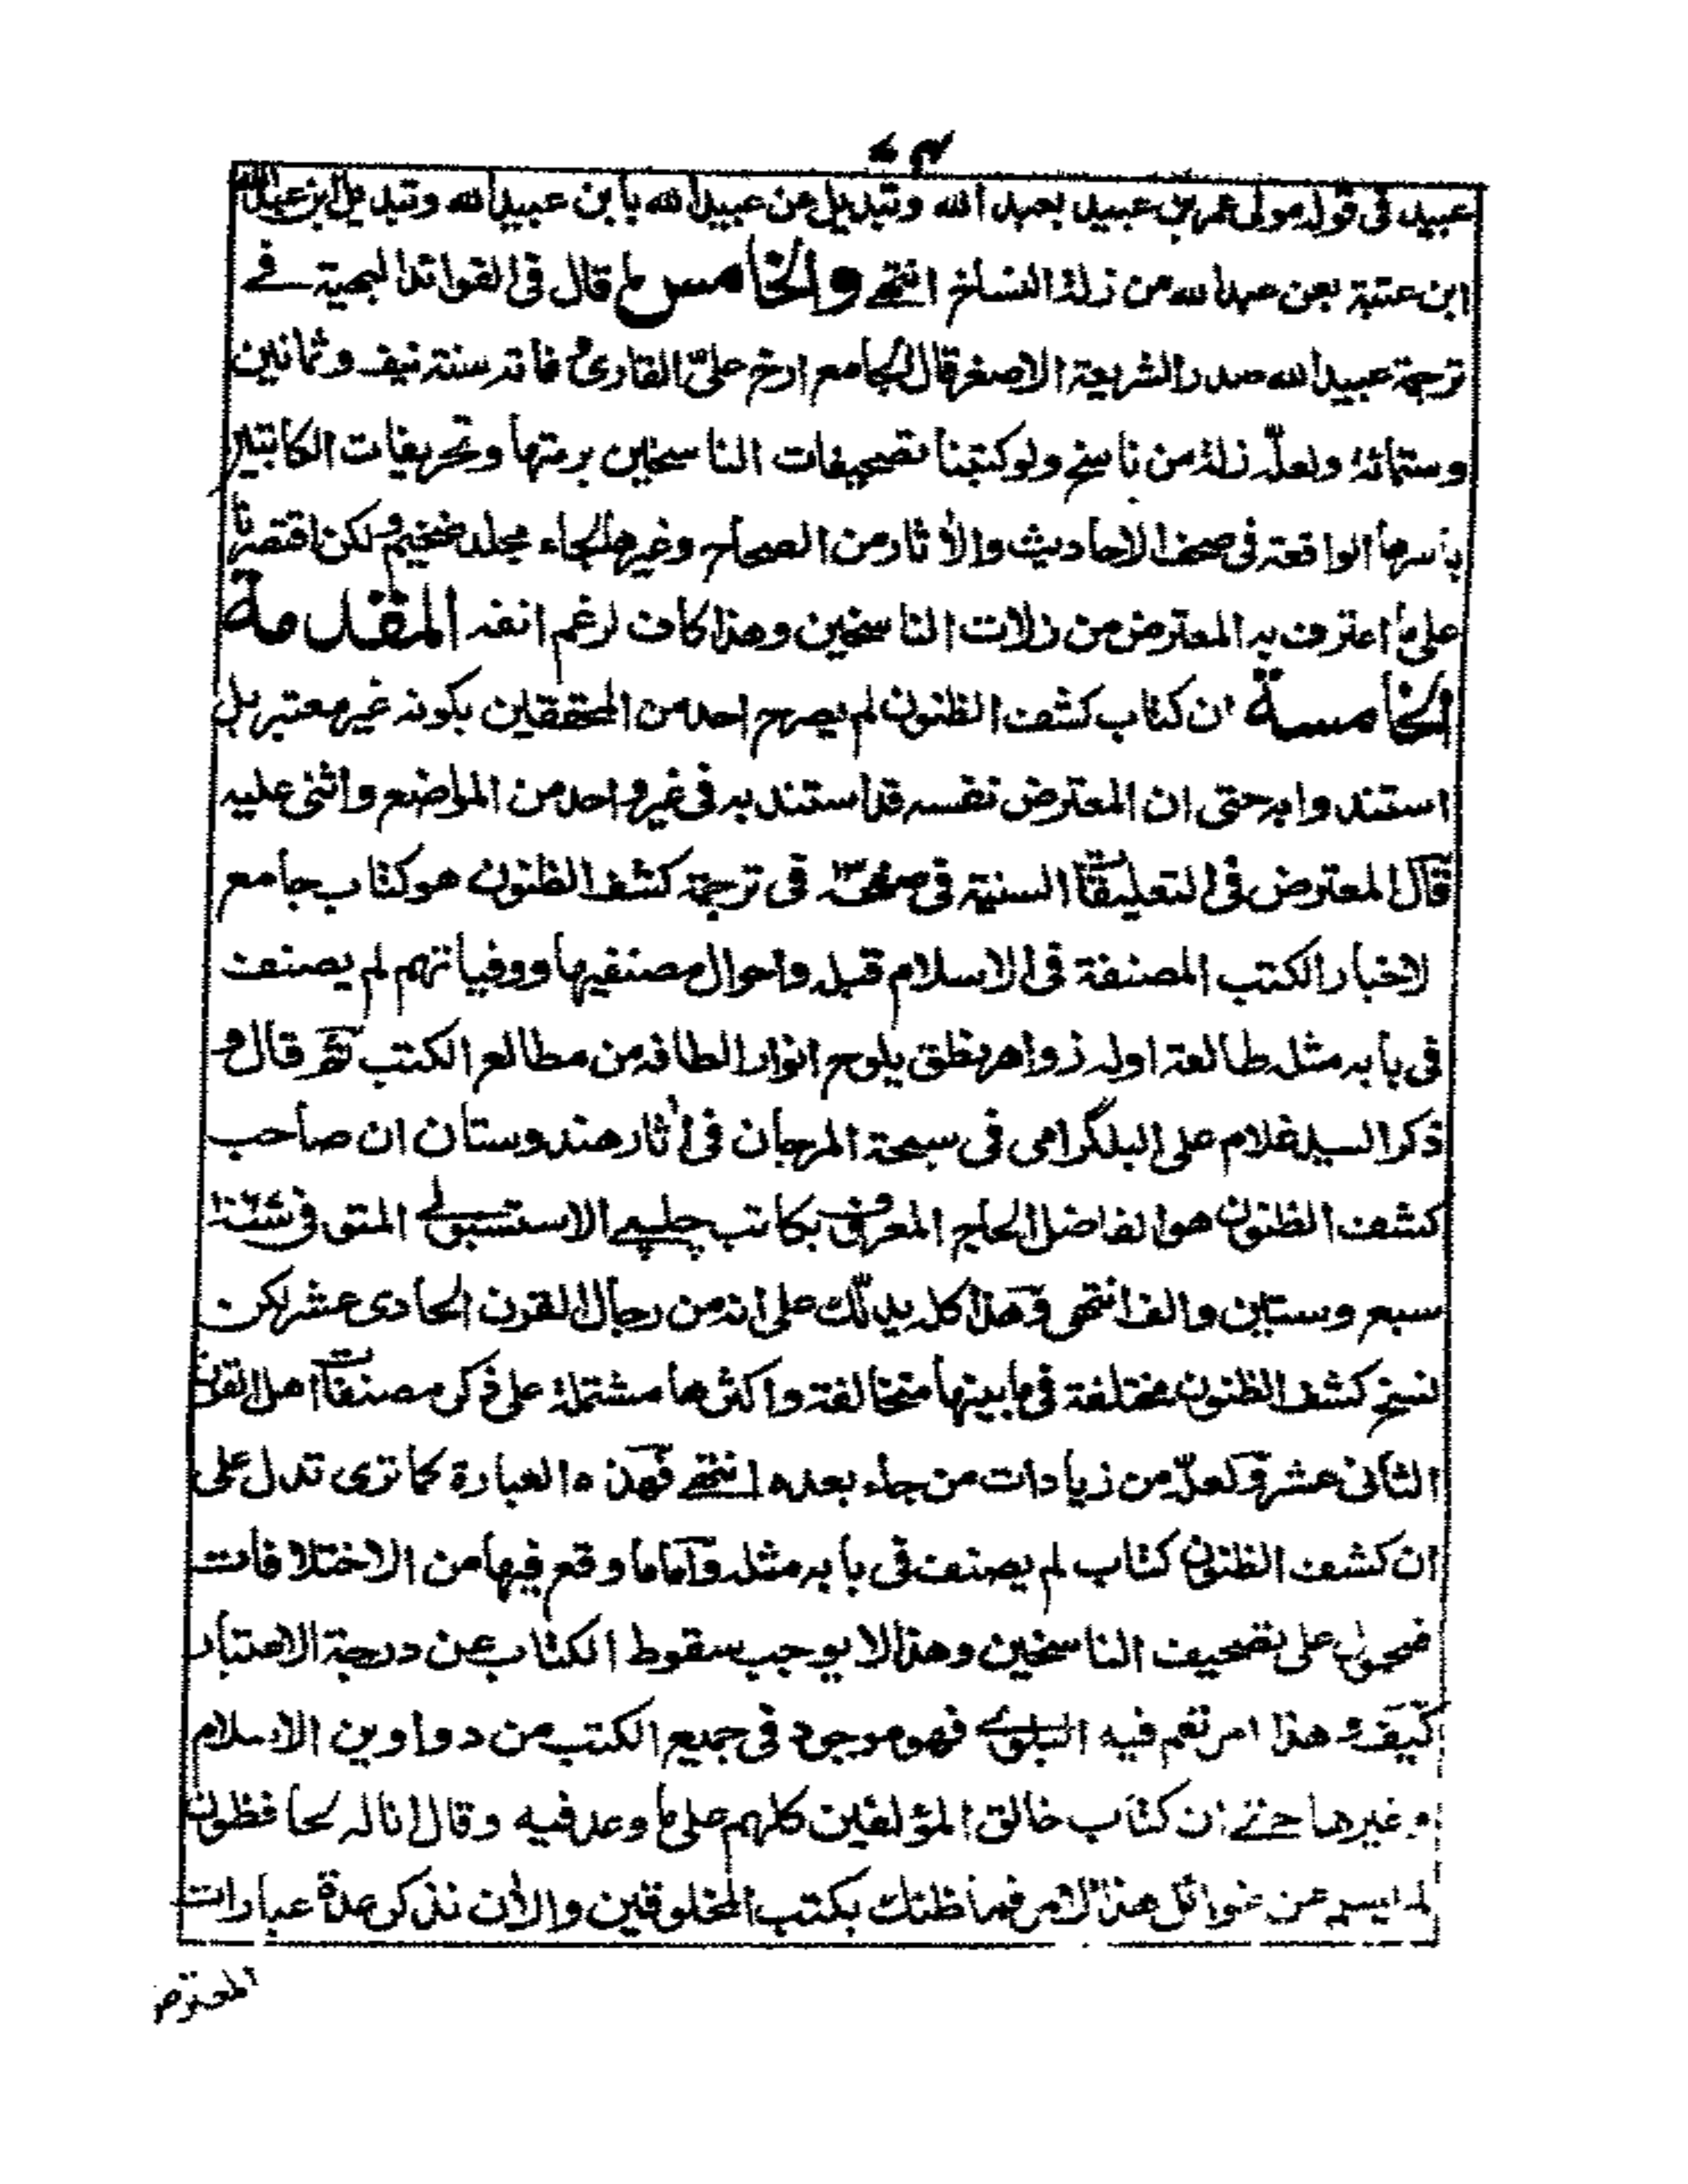 عبيد فى قوله مولى عمر بن عبيد بعبد الله وتبديل عن عبيد الله بابن عبيد الله وتبديل ابن عبد الله
ابن عتبة بعن عبد الله من زلة النساخ انتهى والخامس ما قال فى الفوائد البهية فے
ترجمة عبيد الله صدر الشريعة الاصغر قال الجامع ارخ على القارى وفاته سنة نيف وثمانين
وستمائة ولعله زلة من ناسخ ولو كتبنا تصحيفات الناسخين برمتها وتحريفات الكاتبين
باسرها الواقعة فى صحف الاحاديث والآثار من الصحاح وغيرها لجاء مجلد ضخيم ولكن اقتصرنا
على ما اعترف به المعترض من زلات الناسخين وهذا كاف لرغم انفه المقدمة
الخامسة ان كتاب كشف الظنون لم يصرح احد من المحققين بكونه غير معتبر بل
استندوا به حتى ان المعترض نفسه قد استند به فى غير واحد من المواضع واثنى عليه
قال المعترض فى التعليقات السنية فى صفحة فى ترجمة كشف الظنون هو كتاب جامع
لاخبار الكتب المصنفة فى الاسلام قبله واحوال مصنفيها ووفياتهم لم يصنف
فى بابه مثله طالعته اوله زواهر نطق يلوح انوار الطافه من مطالع الكتب ثم قال و
ذكر السيد غلام على البلگرامى فى سبحة المرجان فى آثار هندوستان ان صاحب
كشف الظنون هو الفاضل الحاج المعروف بكاتب چلپے الاستنبولے المتوفى سنة ١٠٦٧
سبع وستين والف انتهى وهذا كله يدلك على انه من رجال القرن الحادى عشر لكن
نسخ كشف الظنون مختلفة فى ما بينها متخالفة واكثرها مشتملة على ذكر مصنفات اهل القرن
الثانى عشر ولعله من زيادات من جاء بعده انتهى فهذه العبارة كما ترى تدل على
ان كشف الظنون كتاب لم يصنف فى بابه مثله واما ما وقع فيها من الاختلافات
فمحمول على تصحيف الناسخين وهذا لا يوجب سقوط الكتاب عن درجة الاعتبار
كيف وهذا امر تعم فيه البلوى فهو موجود فى جميع الكتب من دواوين الاسلام
وغيرها حتى ان كتاب خالق المؤلفين كلهم على ما وعد فيه وقال انا له لحافظون
لم يسلم عن غوائل هذا الامر فما ظنك بكتب المخلوقين والآن نذكر عدة عبارات
المعترض